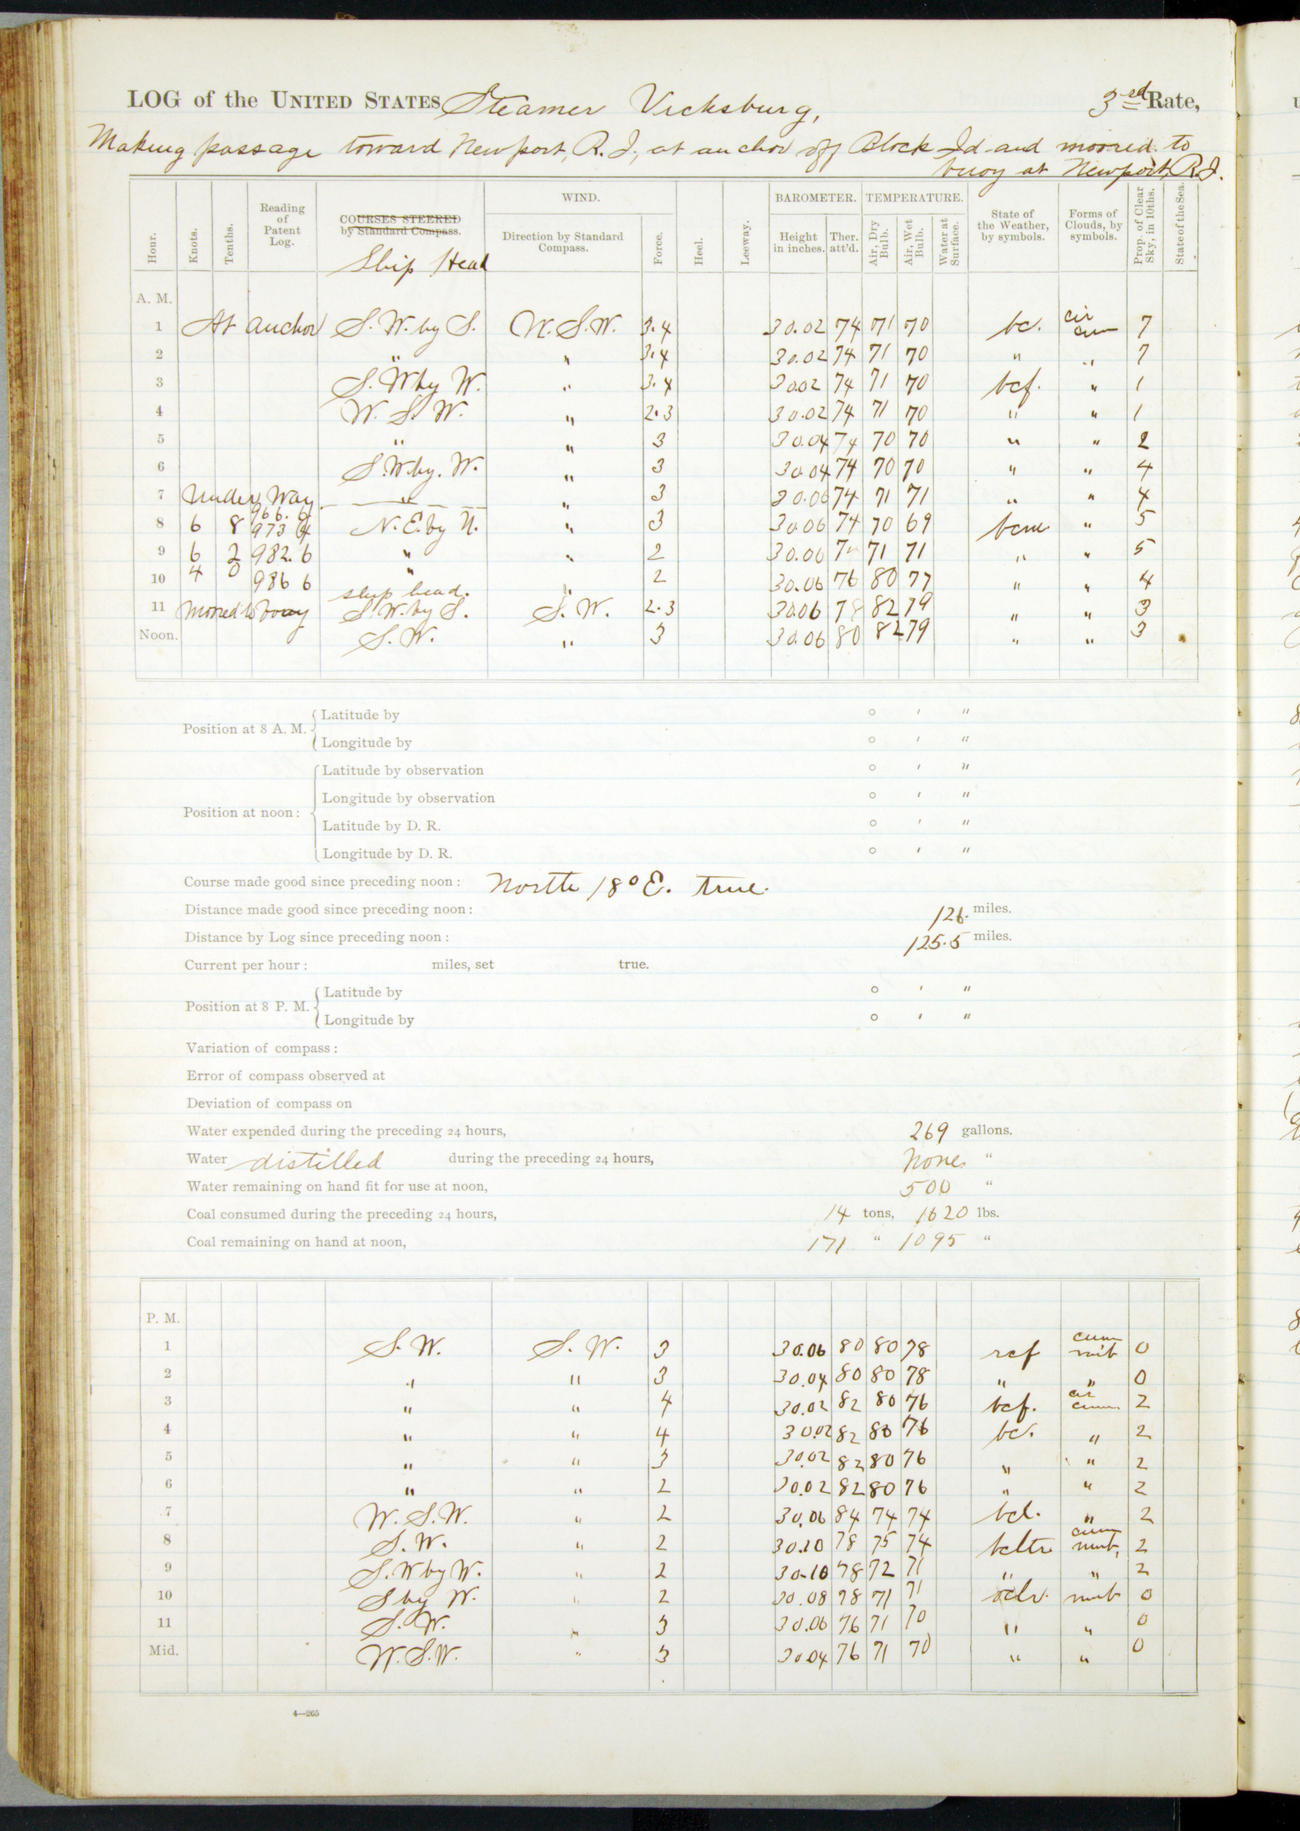 LOG of the UNITED STATES Steamer Vicksburg, 3rd Rate,
Making passage toward Newport, R.I., at anchor off Block Id and moored to
buoy at Newport, R.I.
Hour. Knots. Tenths. Reading of Patent Log. COURSES STEERED by Standard Compass. Ship Head WIND. Direction by Standard Compass. Force. Heel. Leeway. BAROMETER. Height in inches. Ther. att'd. TEMPERATURE. Air, Dry Bulb. Air, Wet Bulb. Water at Surface. State of the Weather, by symbols. Forms of Clouds, by symbols. Prop. of Clear Sky, in 10ths. State of the Sea.
A. M.
1 At anchor S. W. by S. W. S. W. 3.4 30.02 74 71 70 bc. cir cum 7
2 " " 3.4 30.02 74 71 70 " " 7
3 S. W by W. " 3.4 30.02 74 71 70 bcf. " 1
4 W. S. W. " 2.3 30.02 74 71 70 " " 1
5 " " 3 30.04 74 70 70 " " 2
6 S.W by. W. " 3 30.04 74 70 70 " " 4
7 Under Way " " 3 30.06 74 71 71 " " 4
966. 6
8 6 8 973 4 N. E. by N. " 3 30.06 74 70 69 bcm " 5
9 6 2 982. 6 " " 2 30.06 71 71 " " 5
10 4 0 986 6 " " 2 30.06 76 80 77 " " 4
ship head.
11 Moored to buoy S. W. by S. S. W. 2.3 30.06 78 82 79 " " 3
Noon. S. W. " 3 30.06 80 82 79 " " 3
Position at 8 A. M. Latitude by ° ′ ″
Longitude by ° ′ ″
Position at noon: Latitude by observation ° ′ ″
Longitude by observation ° ′ ″
Latitude by D. R. ° ′ ″
Longitude by D. R. ° ′ ″
Course made good since preceding noon: North 18° E. true.
Distance made good since preceding noon: 126. miles.
Distance by Log since preceding noon: 125.5 miles.
Current per hour: miles, set true.
Position at 8 P. M. Latitude by ° ′ ″
Longitude by ° ′ ″
Variation of compass:
Error of compass observed at
Deviation of compass on
Water expended during the preceding 24 hours, 269 gallons.
Water distilled during the preceding 24 hours, None "
Water remaining on hand fit for use at noon, 500 "
Coal consumed during the preceding 24 hours, 14 tons, 1620 lbs.
Coal remaining on hand at noon, 171 " 1095 "
P. M.
1 S. W. S. W. 3 30.06 80 80 78 rcf cum nib 0
2 " " 3 30.04 80 80 78 " " 0
3 " " 4 30.02 82 80 76 bcf. cir cum. 2
4 " " 4 30.02 82 80 76 bc. " 2
5 " " 3 30.02 82 80 76 " " 2
6 " " 2 30.02 82 80 76 " " 2
7 W. S. W. " 2 30.06 84 74 74 bcl. " 2
8 S. W. " 2 30.10 78 75 74 bcltr cum nimb, 2
9 S. W by W. " 2 30.10 78 72 71 " " 2
10 S by W. " 2 30.08 78 71 71 nimb 0
11 S. W. " 3 30.06 76 71 70 " " 0
Mid. W. S. W. " 3 30.04 76 71 70 " " 0
4—265